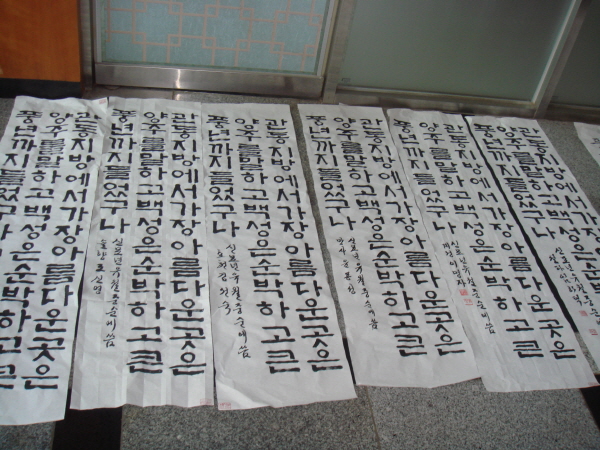 관동지방에서가장아름다운곳은
양주를말하고백성은순박하고큰
풍년까지들었구나
관동지방에서가장아름다운곳은
양주를말하고백성은순박하고큰
풍년까지들었구나
신묘년유월중순에씀
관동지방에서가장아름다운곳은
양주를말하고백성은순박하고큰
풍년까지들었구나
신묘년유월중순에씀
관동지방에서가장아름다운곳은
양주를말하고백성은순박하고큰
풍년까지들었구나
신묘년유월중순에씀
관동지방에서가장아름다운곳은
양주를말하고백성은순박하고큰
풍년까지들었구나
신묘년유월중순에씀
관동지방에서가장아름다운곳은
양주를말하고백성은순박하고큰
풍년까지들었구나
신묘년유월중순